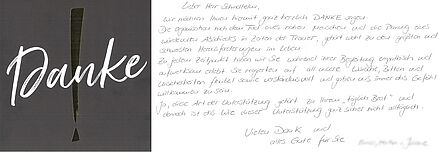 Danke!
Lieber Herr
wir möchten Ihnen hiermit ganz herzlich DANKE sagen.
Die Organisation nach dem Tod eines nahen Menschen und die Planung eines
würdevollen Abschieds in Zeiten der Trauer, gehört wohl zu den größten und
schwersten Herausforderungen im Leben.
Zu jedem Zeitpunkt haben wir Sie während Ihrer Begleitung empathisch und
aufmerksam erlebt. Sie reagierten auf all unsere Wünsche, Bitten und
Unsicherheiten flexibel sowie verständnisvoll und gaben uns immer das Gefühl
willkommen zu sein.
Ja, diese Art der Unterstützung gehört zu Ihrem "täglich Brot" und
dennoch ist das Wie dieser Unterstützung ganz sicher nicht alltäglich.
Vielen Dank und
alles Gute für Sie